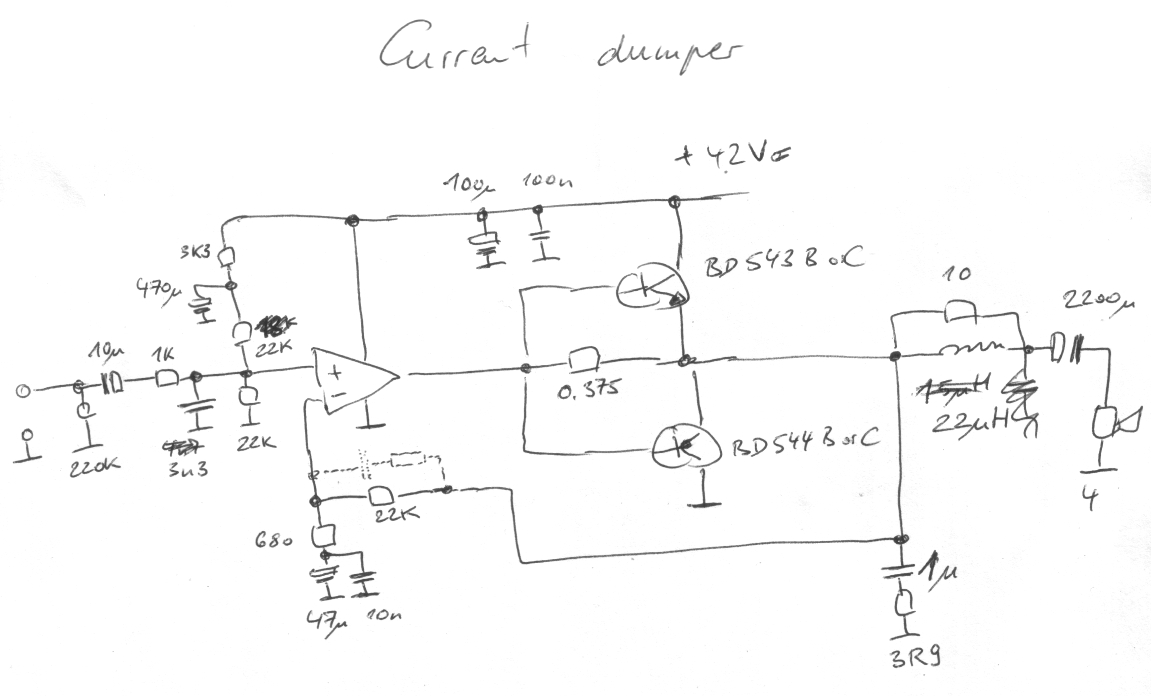 Current dumper
+ 42V=
100µ 100n
3K3
BD543B or C
470µ
10
2200µ
22K
10µ 1K
+
-
0.375
22µH
3n3
22K
BD544B or C
220K
4
22K
680
1µ
47µ 10n
3R9